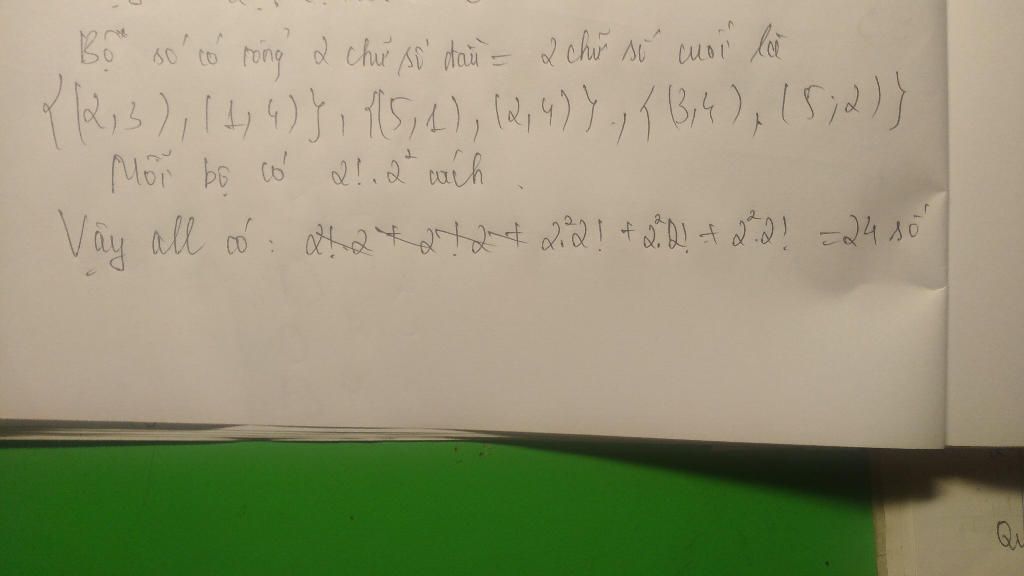 Bộ số có tổng 2 chữ số đầu = 2 chữ số cuối là
{(2,3), (1,4)}, {(5,1), (2,4)}, {(3,4), (5;2)}
Mỗi bộ có 2!.2² cách.
Vậy all có: 2².2! + 2².2! + 2².2! = 24 số
Qu